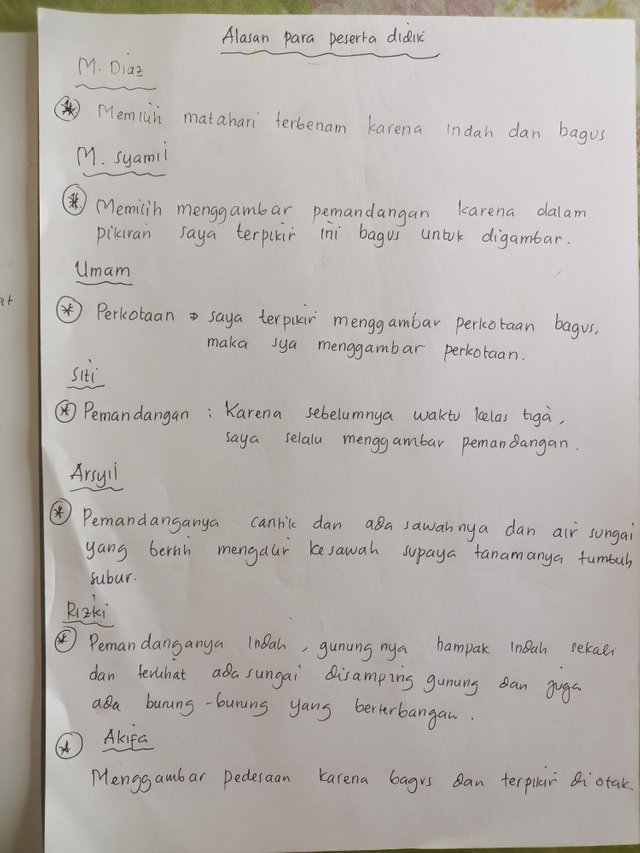 Alasan para peserta didik
M. Diaz
Memilih matahari terbenam karena indah dan bagus
M. Syamil
Memilih menggambar pemandangan karena dalam
pikiran saya terpikir ini bagus untuk digambar.
Umam
Perkotaan → saya terpikir menggambar perkotaan bagus,
maka sya menggambar perkotaan.
Siti
Pemandangan : Karena sebelumnya waktu kelas tiga,
saya selalu menggambar pemandangan.
Arsyil
Pemandanganya cantik dan ada sawahnya dan air sungai
yang bernih mengalir kesawah supaya tanamanya tumbuh
subur.
Rizki
Pemandanganya Indah, gunungnya nampak indah sekali
dan terlihat ada sungai disamping gunung dan juga
ada burung-burung yang berterbangan.
Akifa
Menggambar pedesaan karena bagus dan terpikir di otak